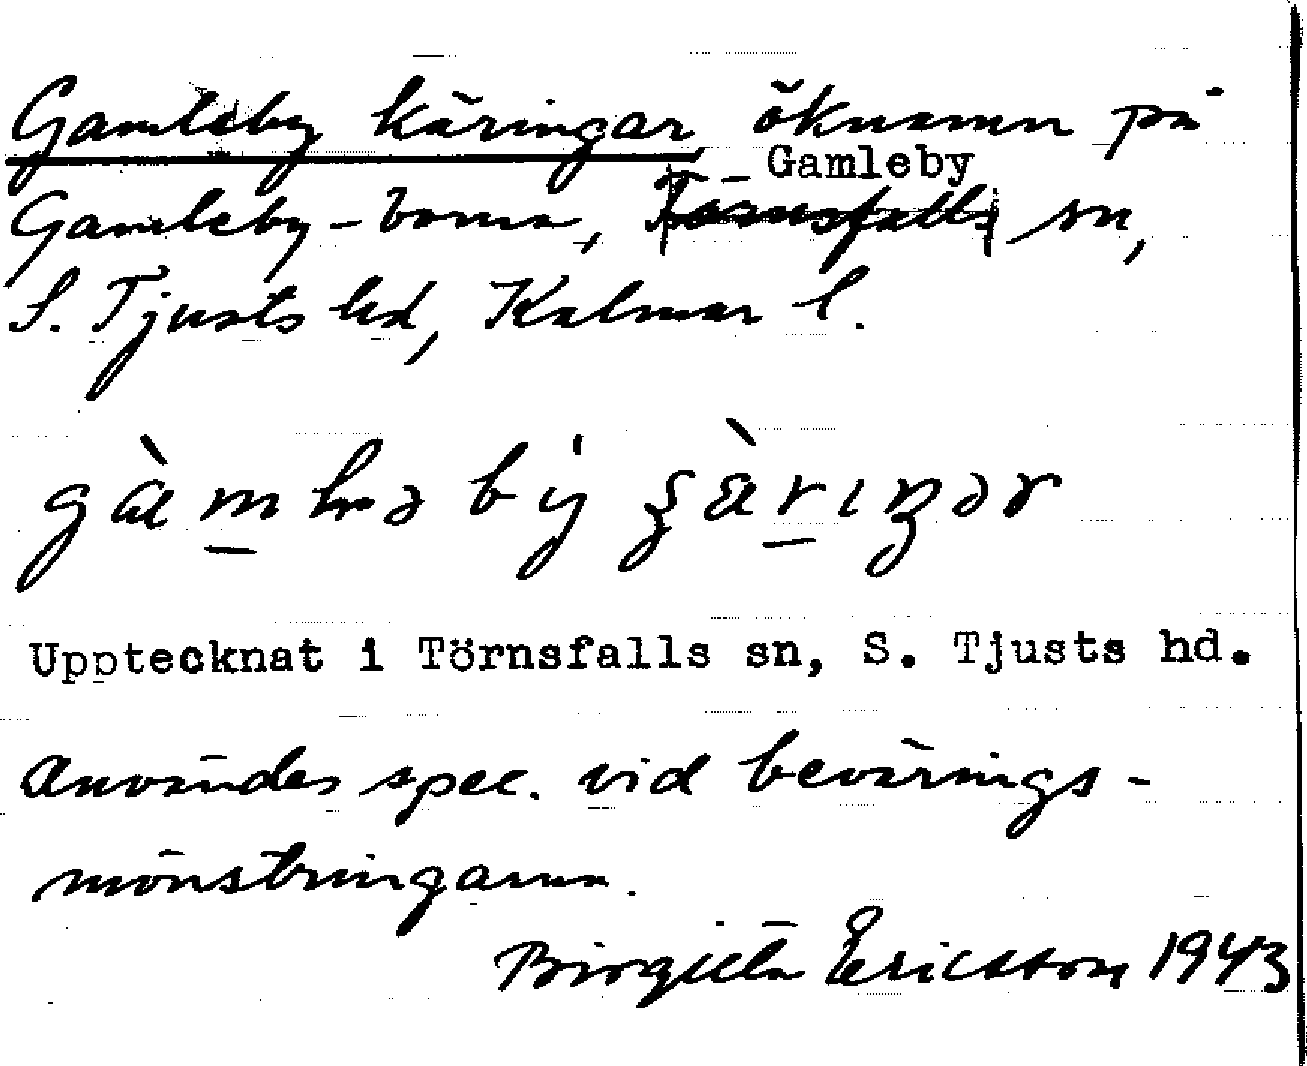 Gamleby käringar, öknamn på
Gamleby-borna, Törnsfalls Gamleby sn,
S. Tjusts hd, Kalmar l.
Upptecknat i Törnsfalls sn, S. Tjusts hd.
Användes spec. vid bevärings-
mönstringarna.
Birgitta Ericsson 1943